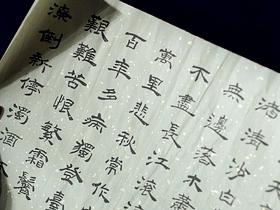 渚清沙白
無邊落木
不盡長江滾
萬里悲秋常作
百年多病獨登臺
艱難苦恨繁霜鬢
潦倒新停濁酒